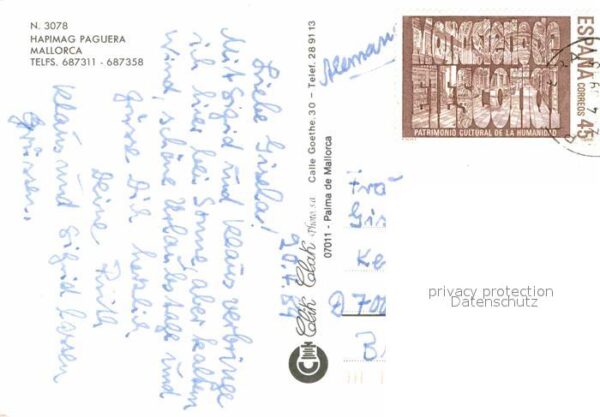 N. 3078
HAPIMAG PAGUERA
MALLORCA
TELFS. 687311 - 687358
20.4.89
Liebe Gisela!
Mit Sigrid und Klaus verbringe
ich hier bei Sonne, aber kaltem
Wind, schöne Urlaubstage und
grüsse Dich herzlich.
Deine Ruth
Klaus und Sigrid lassen
grüssen.
Clik Clak Photo, s.a. Calle Goethe, 30 - Telef. 28 91 13
07011 - Palma de Mallorca
Aleman
Monasterio de
El Escorial
PATRIMONIO CULTURAL DE LA HUMANIDAD
ESPAÑA
CORREOS
45
Frau
Gis
Ke
D 700
privacy protection
Datenschutz